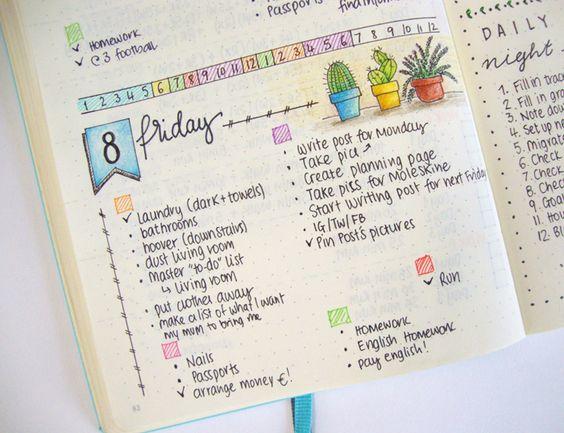 Homework
C3 football
Passports
1 2 3 4 5 6 7 8 9 10 11 12 1 2 3 4 5 6 7 8 9 10 11 12
8 friday
laundry (dark+towels)
bathrooms
hoover (downstairs)
dust living room
master "to-do" list
↳ living room
put clothes away
make a list of what I want
my mum to bring me
Nails
Passports
arrange money €!
Write post for Monday
Take pics
Create planning page
Take pics for Moleskine
Start writing post for next Friday
IG/TW/FB
Pin Post's pictures
Run
Homework
English Homework
pay english!
82
DAILY
night
1. Fill in
2. Fill in
3. Note
4. Set up
5.
6. Check
7. Check
8. Check
9.
10.
11.
12.